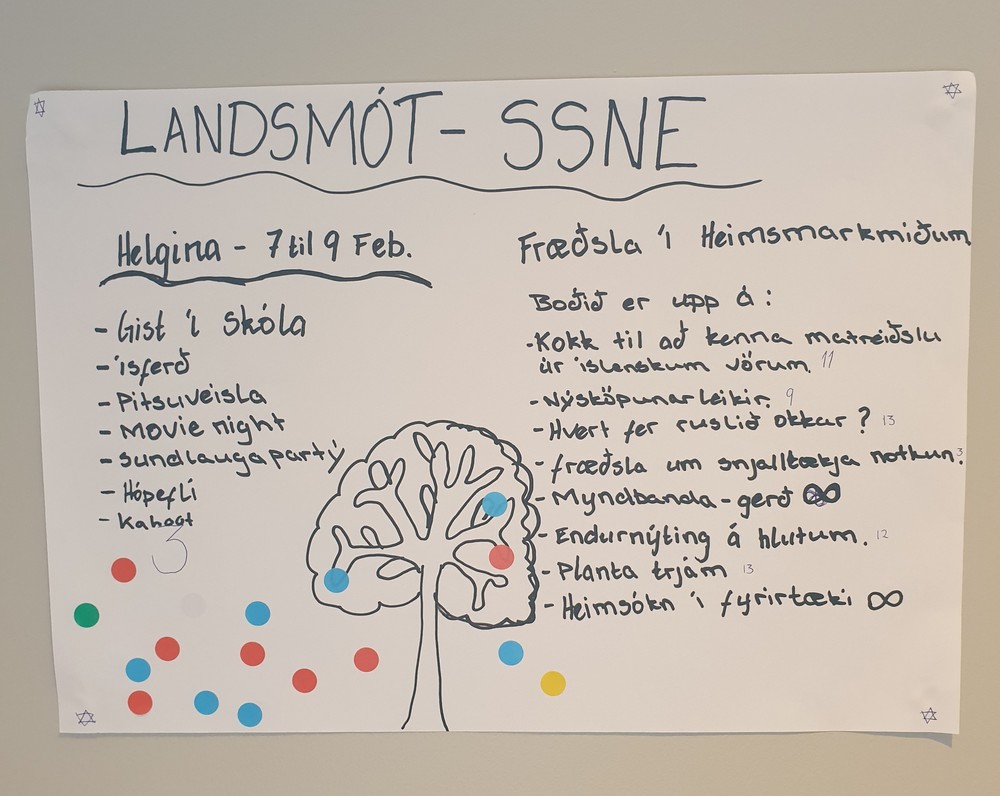 LANDSMÓT - SSNE
Helgina - 7 til 9 Feb.
- Gist í skóla
- ísferð
- Pitsuveisla
- Movie night
- Sundlaugapartý
- Hópefli
- Kahoot
3
Fræðsla í Heimsmarkmiðum
Boðið er upp á:
- Kokk til að kenna matreiðslu
úr íslenskum vörum. 11
- Nýsköpunarleikir. 9
- Hvert fer ruslið okkar? 13
- fræðsla um snjalltækja notkun. 3
- Myndbanda-gerð ∞
- Endurnýting á hlutum. 12
- Planta trjám 13
- Heimsókn í fyrirtæki ∞